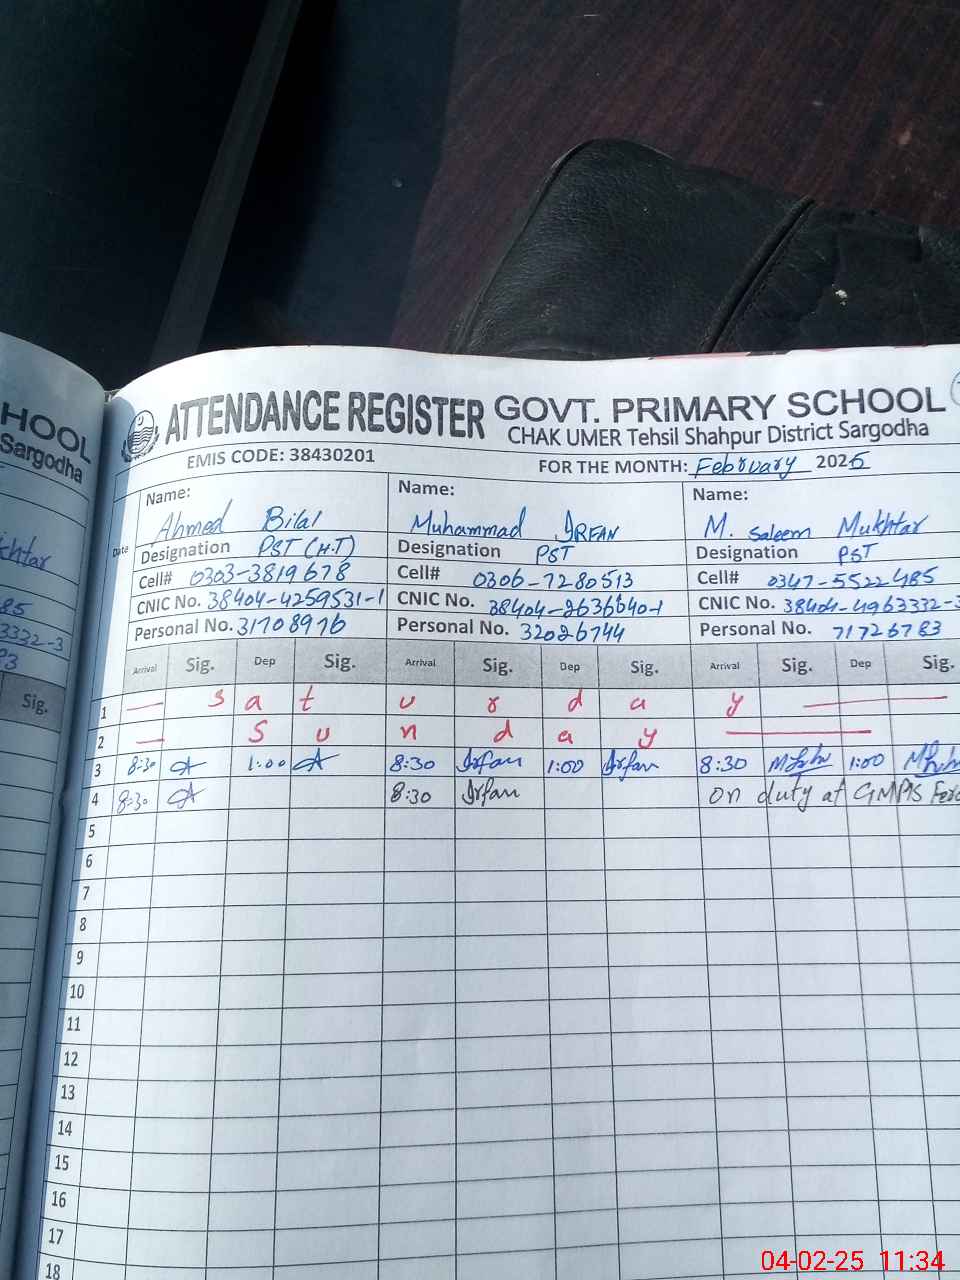 HOOL
Sargodha
85
3332-3
Sig.
ATTENDANCE REGISTER GOVT. PRIMARY SCHOOL
CHAK UMER Tehsil Shahpur District Sargodha
EMIS CODE: 38430201 FOR THE MONTH: February 2025
Date Name: Name: Name:
Ahmed Bilal Muhammad IRFAN M. Saleem Mukhtar
Designation PST (H.T) Designation PST Designation PST
Cell# 0303-3819678 Cell# 0306-7280513 Cell# 0347-5522485
CNIC No. 38404-4259531-1 CNIC No. 38404-2636640-1 CNIC No. 38404-4963332-3
Personal No. 31708976 Personal No. 32026744 Personal No. 71726783
Arrival Sig. Dep Sig. Arrival Sig. Dep Sig. Arrival Sig. Dep Sig.
1 — S a t u r d a y —
2 — S u n d a y —
3 8:30 1:00 8:30 Irfan 1:00 Irfan 8:30 1:00
4 8:30 8:30 Irfan on duty at GMPS
5
6
7
8
9
10
11
12
13
14
15
16
17
18
04-02-25 11:34